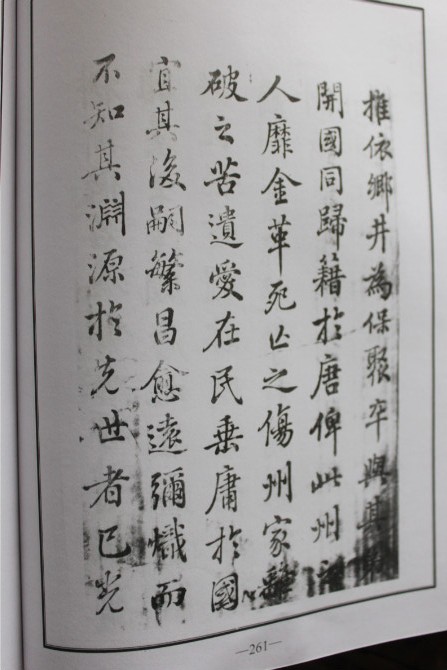 推依鄉井為保聚卒與其
開國同歸籍於唐俾此州
人靡金革死亡之傷州家
破之苦遺愛在民垂庸於國
宜其後嗣繁昌愈遠彌熾而
不知其淵源於先世者已先
—261—